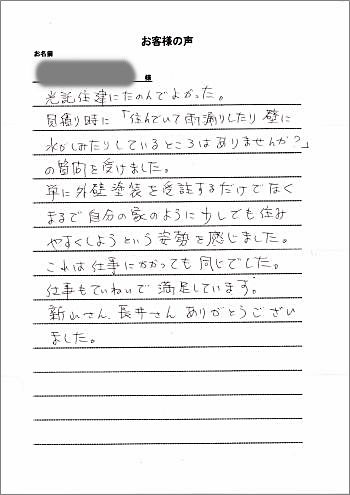 お客様の声
お名前
様
光託住建にたのんでよかった。
見積り時に「住んでいて雨漏りしたり 壁に
水がしみたりしているところはありませんか？」
の質問を受けました。
単に外壁塗装を受託するだけでなく
まるで自分の家のように少しでも住み
やすくしようという姿勢を感じました。
これは仕事にかかっても同じでした。
仕事もていねいで満足しています。
新山さん、長井さん ありがとうござい
ました。